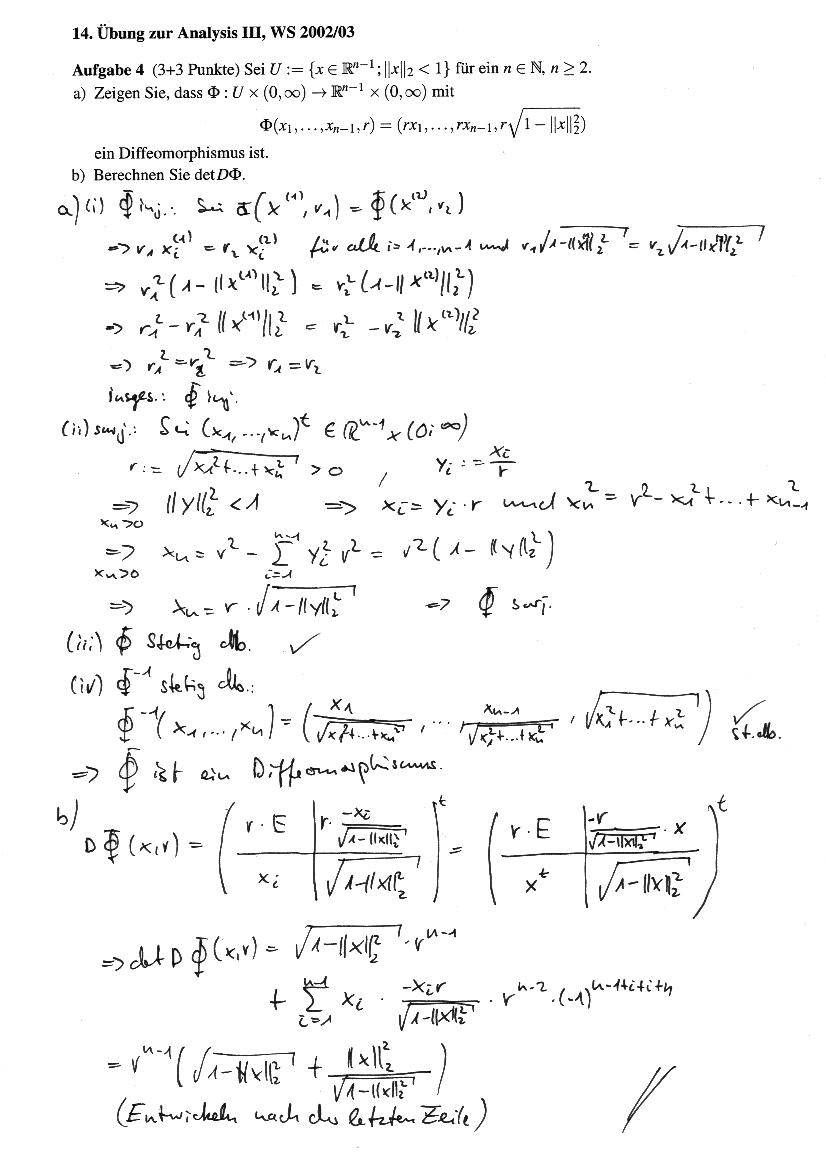 14. Übung zur Analysis III, WS 2002/03
Aufgabe 4 (3+3 Punkte) Sei U := {x ∈ ℝⁿ⁻¹; ||x||₂ < 1} für ein n ∈ ℕ, n ≥ 2.
a) Zeigen Sie, dass Φ : U × (0,∞) → ℝⁿ⁻¹ × (0,∞) mit
Φ(x₁,…,xₙ₋₁,r) = (rx₁,…,rxₙ₋₁,r√(1−||x||₂²))
ein Diffeomorphismus ist.
b) Berechnen Sie det DΦ.
a) (i) Φ inj.: Sei Φ(x⁽¹⁾, r₁) = Φ(x⁽²⁾, r₂)
=> r₁ xᵢ⁽¹⁾ = r₂ xᵢ⁽²⁾ für alle i=1,...,n-1 und r₁√(1-||x⁽¹⁾||₂²) = r₂√(1-||x⁽²⁾||₂²)
=> r₁²(1-||x⁽¹⁾||₂²) = r₂²(1-||x⁽²⁾||₂²)
=> r₁²-r₁²||x⁽¹⁾||₂² = r₂²-r₂²||x⁽²⁾||₂²
=> r₁²=r₂² => r₁=r₂
insges.: Φ inj.
(ii) surj.: Sei (x₁,...,xₙ)ᵗ ∈ ℝⁿ⁻¹ x (0;∞)
r := √(x₁²+...+xₙ²) > 0 , yᵢ := xᵢ/r
=> (xₙ>0) ||y||₂² < 1 => xᵢ = yᵢ·r und xₙ² = r²-x₁²+...+xₙ₋₁²
=> (xₙ>0) xₙ = r² - Σᵢ₌₁ⁿ⁻¹ yᵢ² r² = r²(1-||y||₂²)
=> xₙ = r·√(1-||y||₂²) => Φ surj.
(iii) Φ stetig db. ✓
(iv) Φ⁻¹ stetig db.:
Φ⁻¹(x₁,...,xₙ) = (x₁/√(x₁²+...+xₙ²), ... xₙ₋₁/√(x₁²+...+xₙ²), √(x₁²+...+xₙ²)) ✓ st. db.
=> Φ ist ein Diffeomorphismus.
b) DΦ(x,r) = (r·E | r·-xᵢ/√(1-||x||₂²) ; xᵢ | √(1-||x||₂²))ᵗ = (r·E | -r/√(1-||x||₂²)·x ; xᵗ | √(1-||x||₂²))ᵗ
=> det DΦ(x,r) = √(1-||x||₂²)·rⁿ⁻¹
+ Σᵢ₌₁ⁿ⁻¹ xᵢ · -xᵢr/√(1-||x||₂²) · rⁿ⁻²·(-1)ⁿ⁻¹⁺ⁱ⁺ⁱ⁺ⁿ
= rⁿ⁻¹(√(1-||x||₂²) + ||x||₂²/√(1-||x||₂²))
(Entwickeln nach der letzten Zeile)